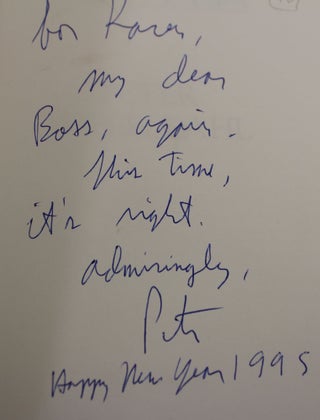 for Karen,
my dear
Boss, again.
This time,
it's right.
admiringly,
Pete
Happy New Year 1995